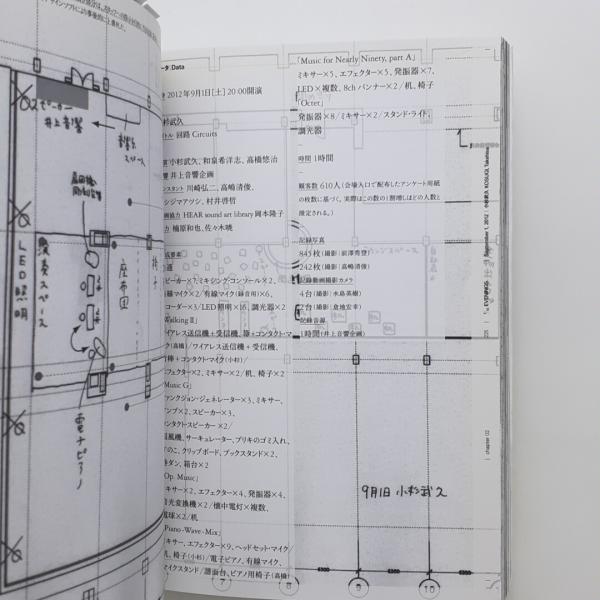 ザインソフトにより事後的に上書きした。
スピーカー
井上音響
音響卓
スペース
演奏スペース
LED照明
座布団
椅子
電子ピアノ
ータ:Data
2012年9月1日[土] 20:00開演
小杉武久
回路 Circuits
小杉武久、和泉希洋志、高橋悠治
井上音響企画
川崎弘二、高嶋清俊、
シジマアツシ、村井啓哲
協力 HEAR sound art library 岡本隆子
力 楠原和也、佐々木暁
ーカー×7、ミキシング・コンソール×2、
線マイク×2/有線マイク(録音用)×6、
コーダー×3/LED照明×16、調光器×2
Walking II」
イアレス送信機+受信機、箒+コンタクト・マ
ク(高橋)/ワイアレス送信機+受信機、
棒+コンタクト・マイク(小杉)/
フェクター×2、ミキサー×2/机、椅子×2
Music G」
ァンクション・ジェネレーター×3、ミキサー、
ンプ×2、スピーカー×3、
ンタクトスピーカー×2/
風機、サーキュレーター、ブリキのゴミ入れ、
のこ、クリップボード、ブックスタンド×2、
ダン、箱台×2
Op. Music」
キサー×2、エフェクター×4、発振器×4、
光変換機×2/懐中電灯×複数、
球×2/机
Piano-Wave-Mix」
キサー、エフェクター×9、ヘッドセット・マイク/
、椅子(小杉)/電子ピアノ、有線マイク、
マイクスタンド/譜面台、ピアノ用椅子(高橋)
「Music for Nearly Ninety, part A」
ミキサー×5、エフェクター×5、発振器×7、
LED×複数、8chパンナー×2/机、椅子
「Octet」
発振器×8/ミキサー×2/スタンド・ライト、
調光器
時間 1時間
観客数 610人(会場入口で配布したアンケート用紙
の枚数に基づく。実際はこの数の1割増しほどの人数と
推定される。)
記録写真
845枚(撮影|前澤秀登)
242枚(撮影|高嶋清俊)
記録動画撮影カメラ
4台(撮影|水島英樹)
2台(撮影|桑地宏幸)
記録音源
1時間(井上音響企画)
9月1日 小杉武久
7
8
9
10
September 1, 2012 | 小杉武久 KOSUGI, Takehisa
chapter 03